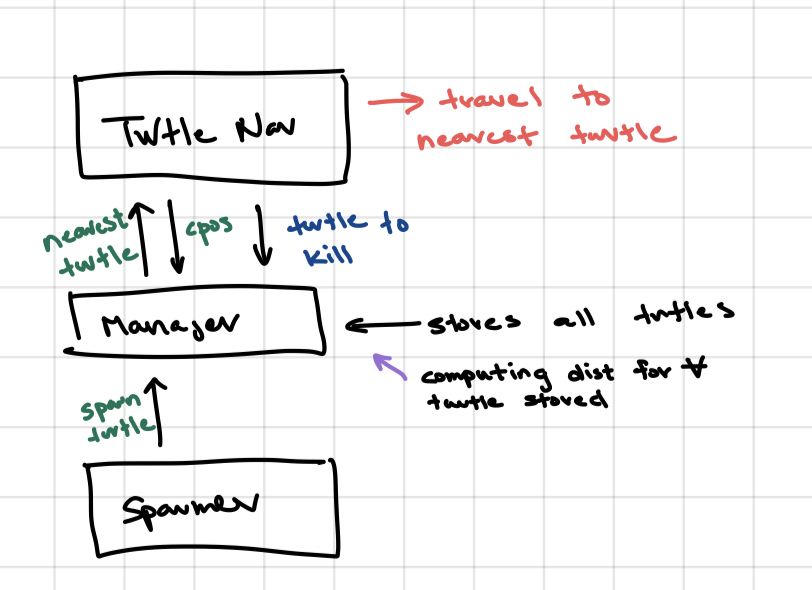 Turtle Nav
travel to
nearest turtle
nearest
turtle
cpos
turtle to
kill
Manager
stores all turtles
computing dist for ∀
turtle stored
spawn
turtle
Spawner